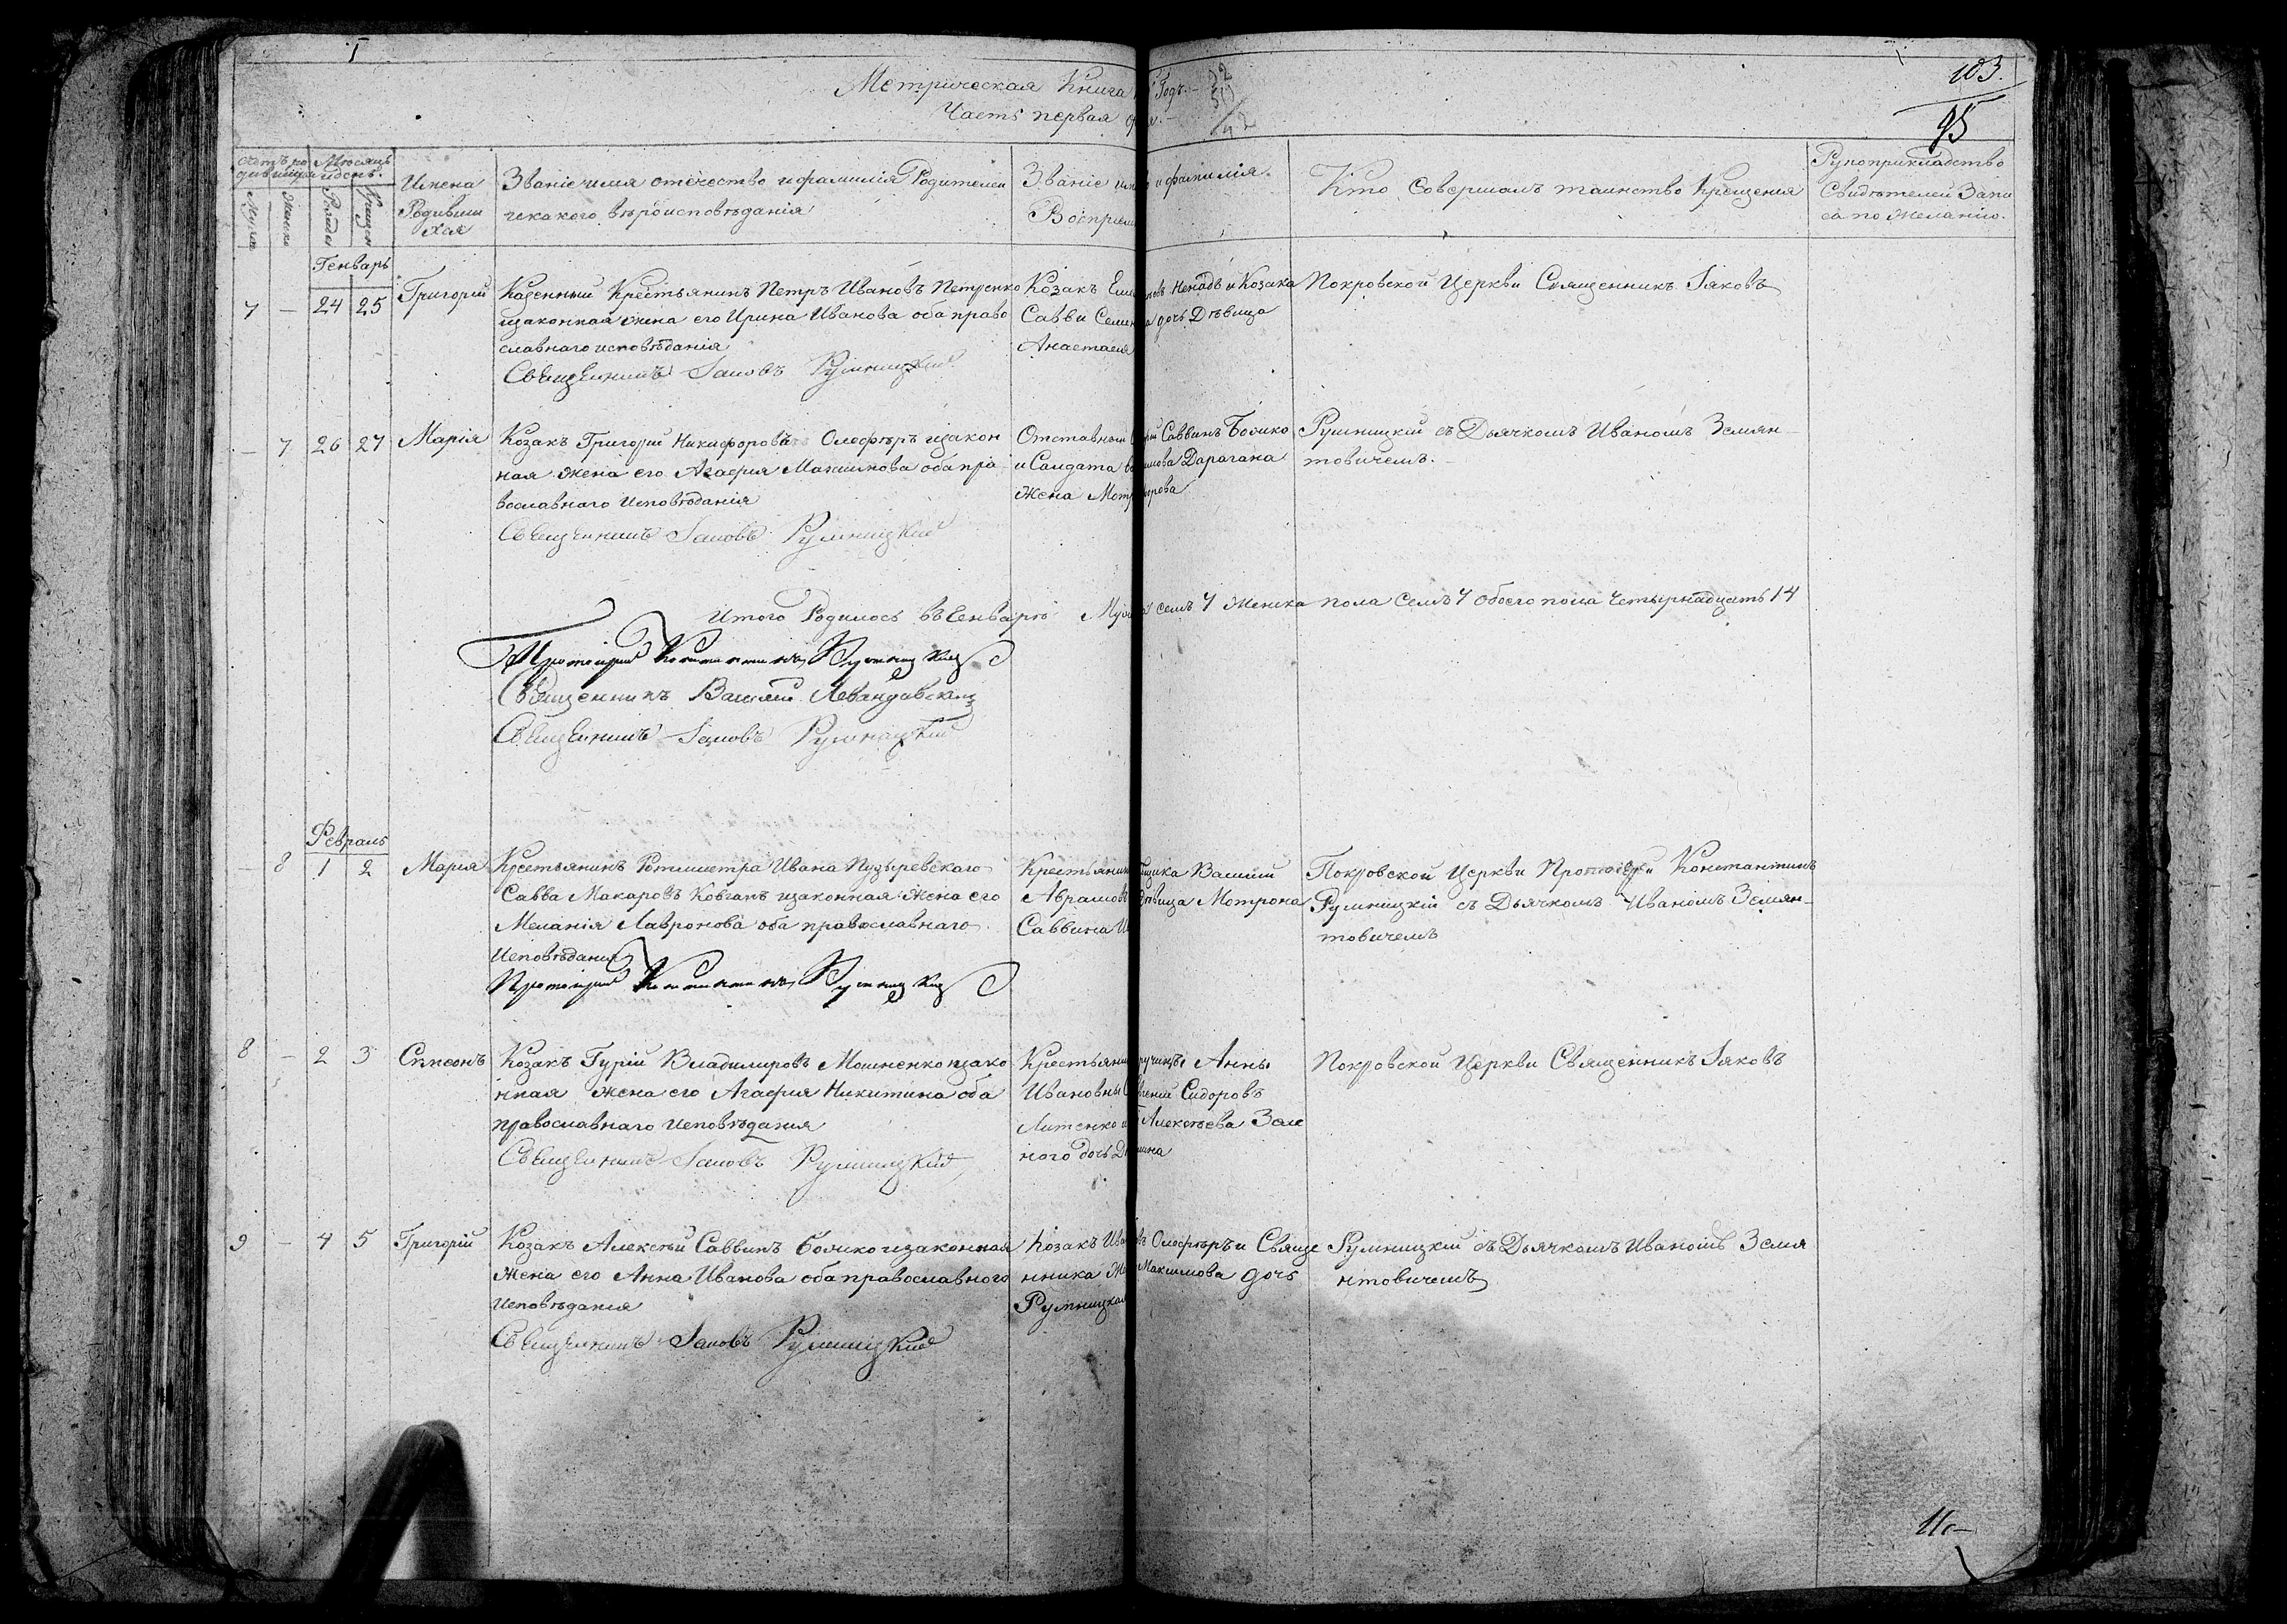 Метрическая Книга Годъ.
103.
Часть первая
95
Мѣсяцъ и день.
Имена Родившихся
Званіе имя отечество и фамилія Родителей
и какого вѣроисповѣданія
Званіе и фамилія.
Воспріем
Кто Совершалъ таинство Крещенія
Рукоприкладство
Свидѣтелей Запи
си по желанію.
Генварь
7 – 24 25 Григорій
Казенный Крестьянинъ Петръ Ивановъ Петренко
и законная жена его Ирина Иванова оба право
славнаго исповѣданія
Священникъ Іаковъ Румницкій
Козакъ Ненадъ и Козака
Савви дочь Дѣвица
Анастасія
Покровской Церкви Священникъ Іяковъ
– 7 26 27 Марія
Козакъ Григорій Никифоровъ Олефѣръ и закон
ная жена его Агафия оба пра
вославнаго исповѣданія
Священникъ Іаковъ Румницкій
Отставный Саввинъ Бойко
и Салдата Дарагана
Жена
Румницкій съ Дьячкомъ Иваномъ Землян-
товичемъ.
Итого Родилось въ Генварѣ семъ 7 Женска пола Семъ 7 обоего пола Четырнадцать 14
Протоіерей Константинъ Румницкій
Священникъ Василій Левандовскій
Священникъ Іаковъ Румницкій
Февраль
– 8 1 2 Мария
Крестьянинъ Ротмистра Ивана Пузыревскаго
Савва Макаровъ Ковганъ и законная жена его
Меланія Лавронова оба православнаго
Исповѣдания
Протоіерей Константинъ Румницкій
Василій
Аврамовъ Дѣвица Мотрона
Саввина
Покровской Церкви Протоіерей Константинъ
Румницкій съ Дьячкомъ Иваномъ Землян-
товичемъ
8 – 2 3 Симеонъ
Козакъ Гурій Владимировъ Мошненко и зако
нная жена его Агафия Никитина оба
православнаго исповѣдания
Священникъ Іаковъ Румницкій
Анны
Ивановны Сидоровъ
Литенко Алексѣева Зеле
ного дочь
Покровской Церкви Священникъ Іяковъ
9 – 4 5 Григорій
Козакъ Алексѣй Саввинъ Бойко и законная
жена его Анна Иванова оба православного
исповѣдания
Священникъ Іаковъ Румницкій
Козакъ Олефѣръ и Свяще
нника Максимова дочь
Румницкая
Румницкій съ Дьячкомъ Иваномъ Земля
нтовичемъ